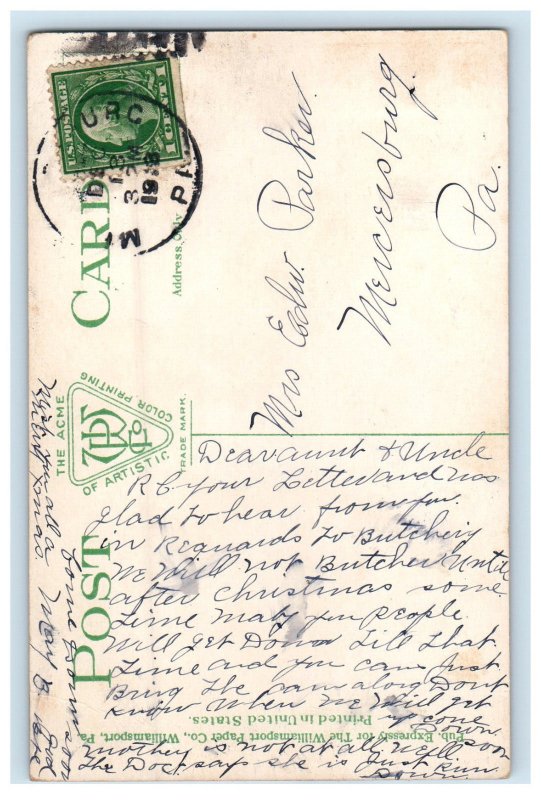 POST CARD
THE ACME
OF ARTISTIC
COLOR PRINTING
TRADE MARK.
Address Only
U.S. POSTAGE
1 CENT 1
URG
DEC
3 PM
PA
MI
Mrs Edw Parker
Mercersburg
Pa.
Dear aunt & Uncle
Rc your Letter and was
glad to hear from you.
in Reguards to Butchering
We Will not Butcher Until
after christmas some
time maby you People
Will get Down till that
time and you can Just
Bring the pam along Dont
know when we Will get
up
Down.
mother is not at all well
the Doc. says she is Just Run
Down.
Wish you all a
Merry Xmas
come soon
Pub. Expressly for The Williamsport Paper Co., Williamsport, Pa.
Printed in United States.